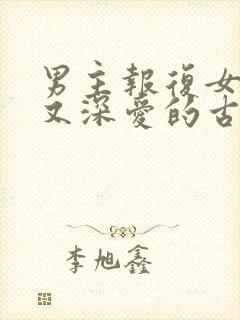 男主報復女
又深愛的古
李旭鑫